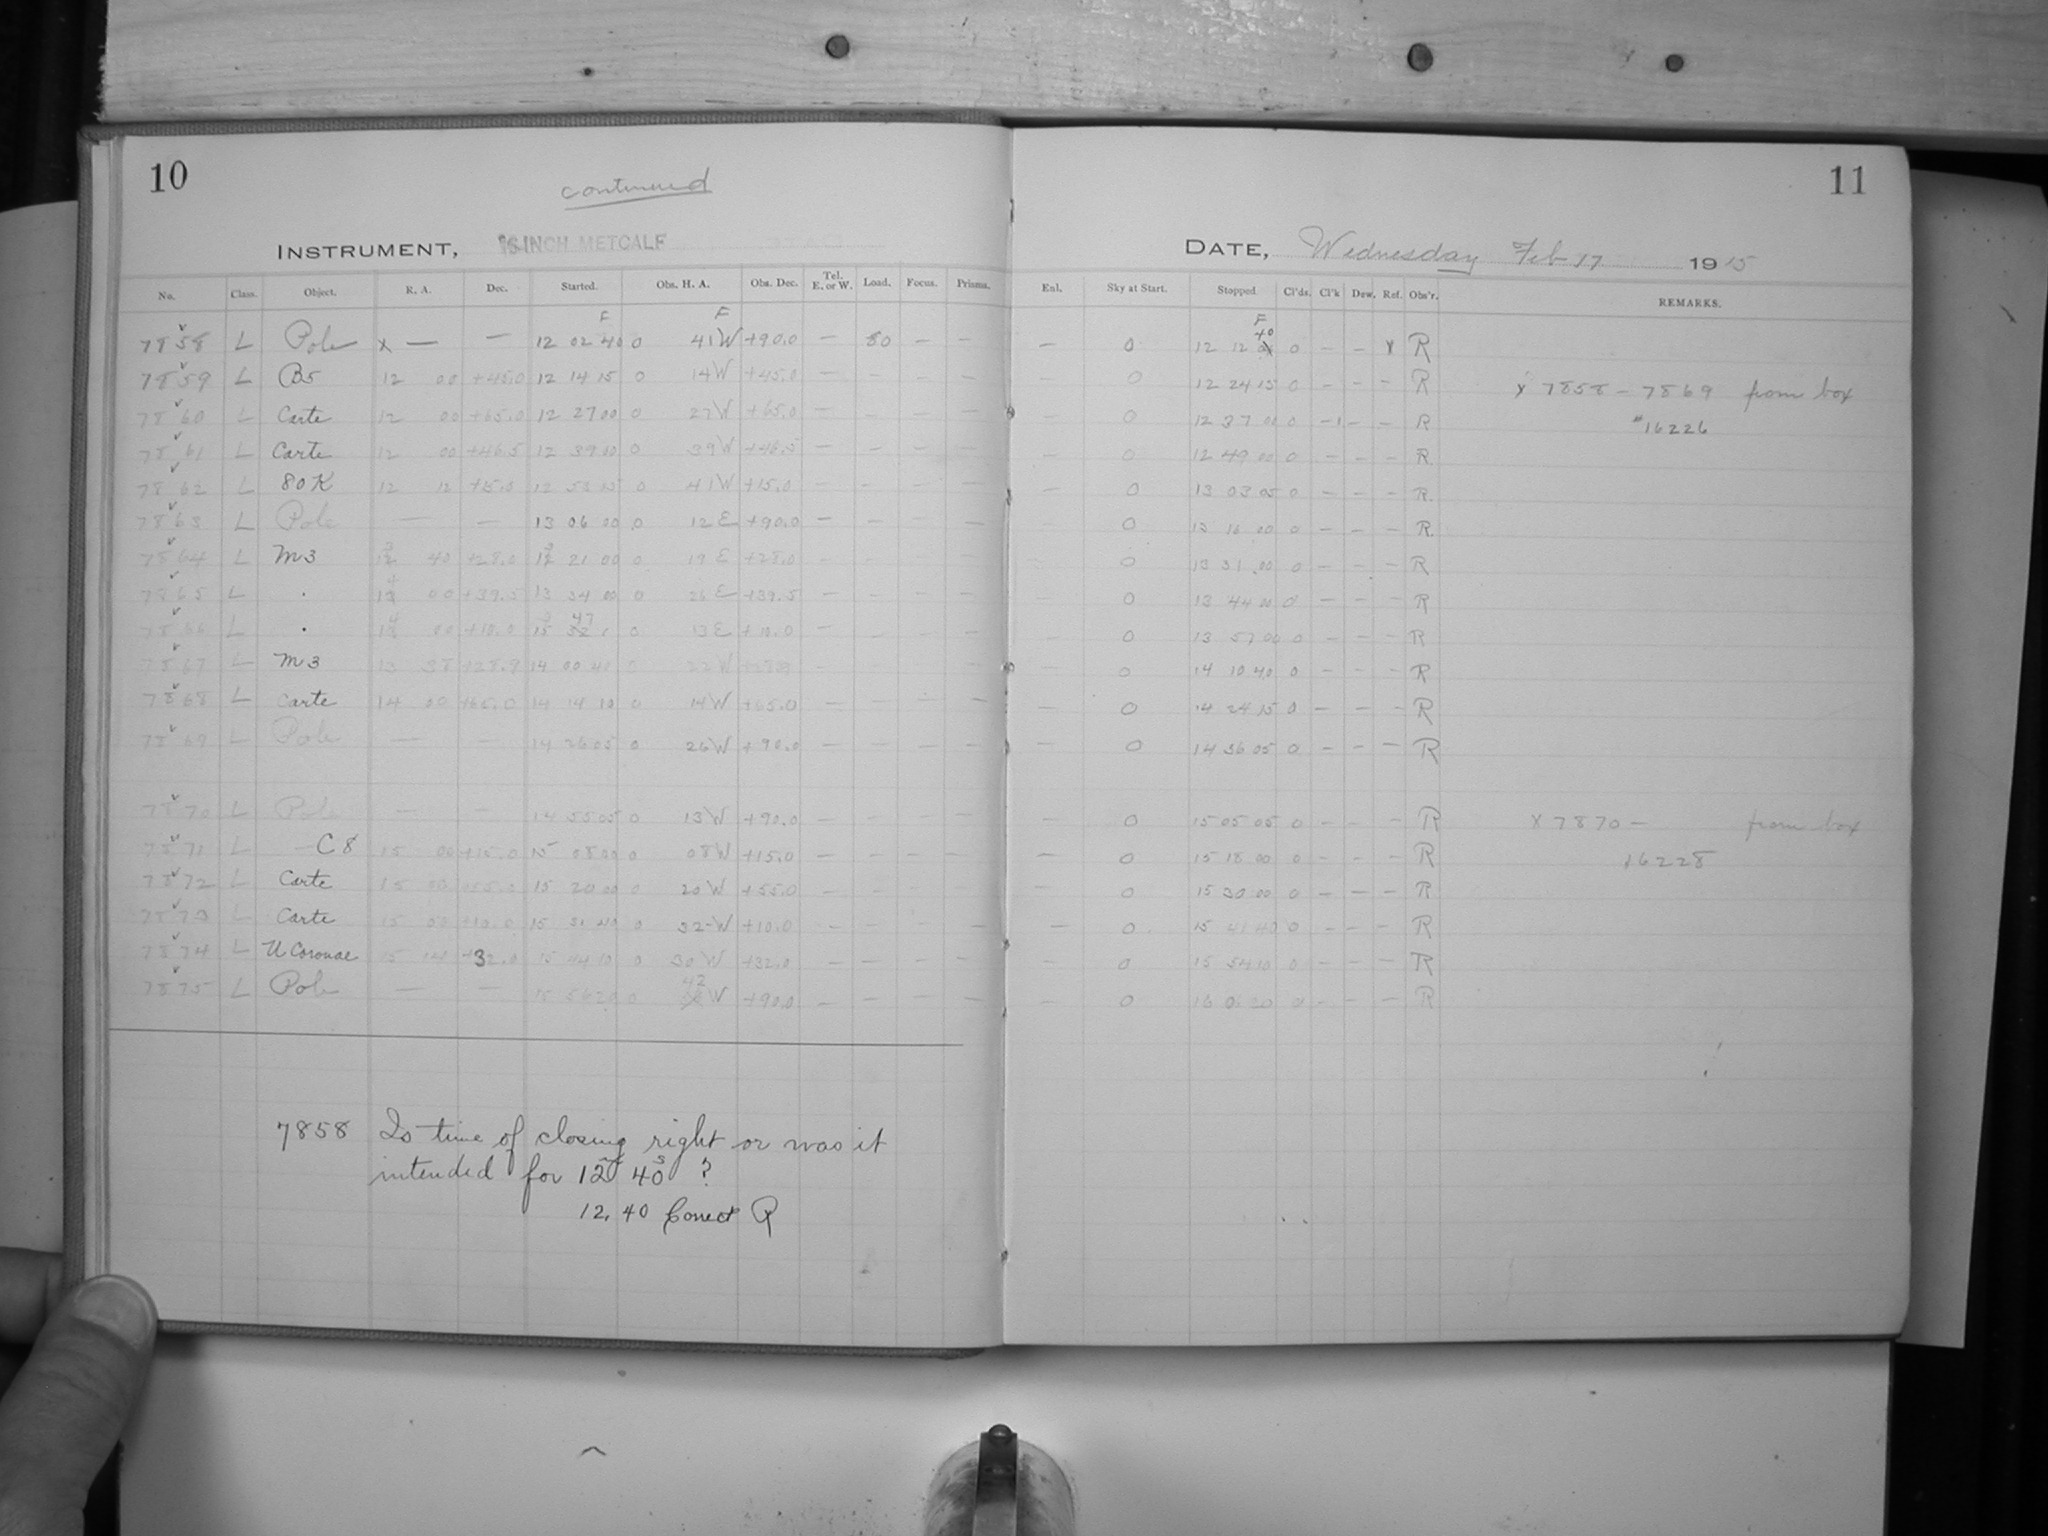 10
continued
INSTRUMENT, 16 INCH METCALF
No. Class. Object. R. A. Dec. Started. Obs. H. A. Obs. Dec. Tel. E. or W. Load. Focus. Prisms.
F F
7858 L Pole x — — 12 02 40 0 41 W +90.0 — 80 — —
7859 L B5 12 00 +45.0 12 14 15 0 14 W +45.0 — — — —
7860 L Carte 12 00 +65.0 12 27 00 0 27 W +65.0 — — — —
7861 L Carte 12 00 +46.5 12 39 00 0 39 W +46.5 — — — —
7862 L 80 K 12 12 +15.0 12 53 0 41 W +15.0 — — — —
7863 L Pole — — 13 06 00 0 12 E +90.0 — — — —
7864 L M3 13 40 +28.0 13 21 00 0 19 E +28.0 — — — —
7865 L . 14 00 +39.5 13 34 00 0 26 E +39.5 — — — —
7866 L . 14 00 +10.0 13 47 0 13 E +10.0 — — — —
7867 L M3 13 38 +28.9 14 00 40 0 22 W — — — —
7868 L Carte 14 00 +65.0 14 14 10 0 14 W +65.0 — — — —
7869 L Pole — — 14 26 05 0 26 W +90.0 — — — —
7870 L Pole — — 14 55 05 0 13 W +90.0 — — — —
7871 L C8 15 00 +15.0 15 08 00 0 08 W +15.0 — — — —
7872 L Carte 15 00 +55.0 15 20 00 0 20 W +55.0 — — — —
7873 L Carte 15 00 +10.0 15 31 40 0 32 W +10.0 — — — —
7874 L U Coronae 15 14 +32.0 15 44 10 0 30 W +32.0 — — — —
7875 L Pole — — 15 56 20 0 42 W +90.0 — — — —
7858 Is time of closing right or was it
intended for 12m 40s ?
12. 40 Correct R
11
DATE, Wednesday Feb 17 1915
Enl. Sky at Start. Stopped. Cl'ds. Cl'k Dew. Ref. Obs'r. REMARKS.
F
— 0 12 12 40 0 — — x R
— 0 12 24 15 0 — — — R x 7858 — 7869 from box
— 0 12 37 00 0 — — — R #16226
— 0 12 49 00 0 — — — R
— 0 13 03 05 0 — — — R.
0 13 16 00 0 — — — R.
0 13 31 00 0 — — — R
0 13 44 00 0 — — — R
— 0 13 57 00 0 — — — R
— 0 14 10 40 0 — — — R
— 0 14 24 15 0 — — — R
— 0 14 36 05 0 — — — R
— 0 15 05 05 0 — — — R x 7870 — from box
— 0 15 18 00 0 — — — R 16228
— 0 15 30 00 0 — — — R
— 0 15 41 40 0 — — — R
0 15 54 10 0 — — — R
0 16 0 20 0 — — — R